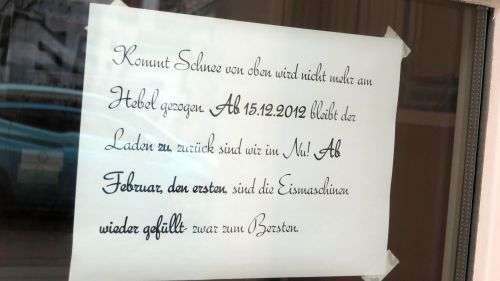 Kommt Schnee von oben wird nicht mehr am
Hebel gezogen. Ab 15.12.2012 bleibt der
Laden zu, zurück sind wir im Nu! Ab
Februar, den ersten, sind die Eismaschinen
wieder gefüllt- zwar zum Bersten.